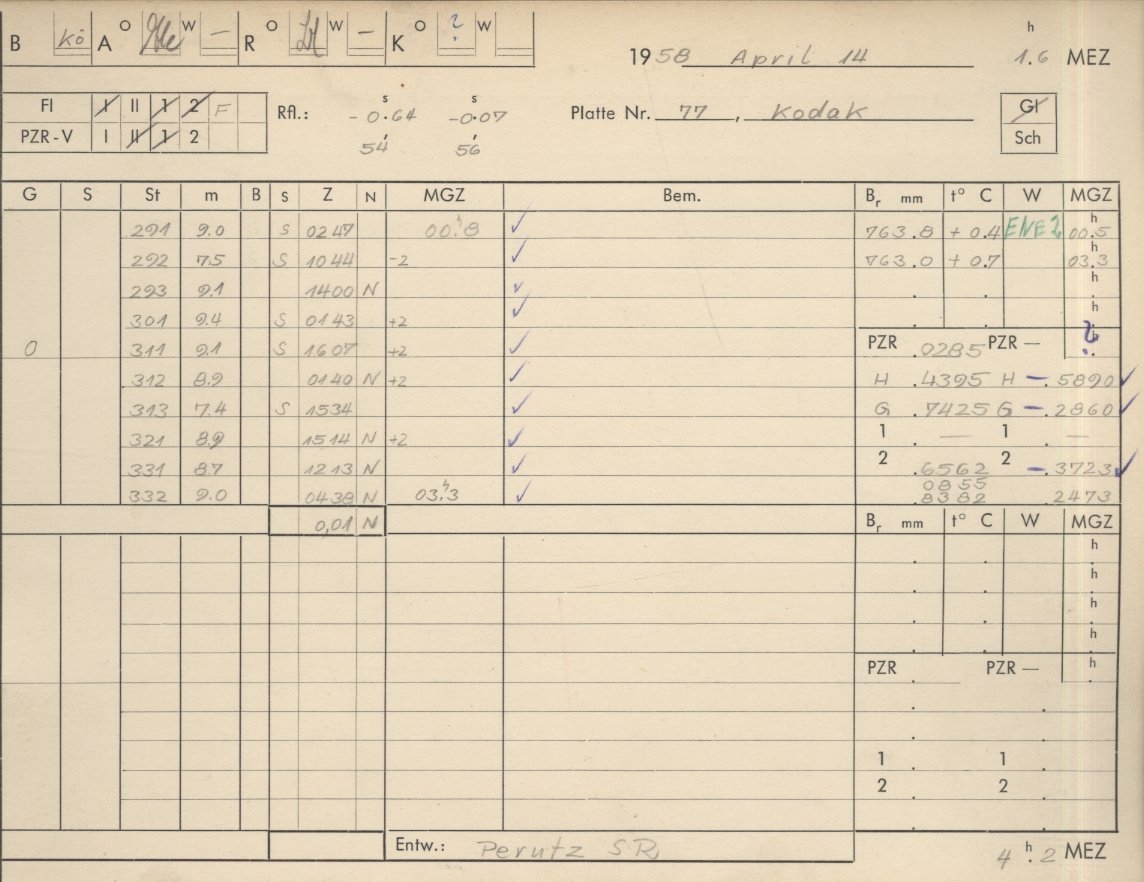 B Kö A O W – R O W – K O ? W
h
1958 April 14 1.6 MEZ
Fl I II 1 2 F
PZR-V I II 1 2
Rfl.: -0.64 s -0.07 s
54 56
Platte Nr. 77, Kodak
Gl
Sch
G S St m B S Z N MGZ Bem. Br mm t° C W MGZ
291 9.0 S 0247 00.8 h ✓ 763.8 +0.4 ENE2 00.5 h
292 7.5 S 1044 -2 ✓ 763.0 +0.7 03.3 h
293 9.1 1400 N ✓ . . h
301 9.4 S 0143 +2 ✓ . . h
0 311 9.1 S 1607 +2 ✓ PZR .0285 PZR – ? h
312 8.9 0140 N +2 ✓ H .4395 H – .5890 ✓
313 7.4 S 1534 ✓ G .7425 G – .2860 ✓
321 8.9 1514 N +2 ✓ 1 . — 1 . —
331 8.7 1213 N ✓ 2 .6562 2 – .3723 ✓
0855
332 9.0 0438 N 03.3 h ✓ 8382 .2473
0,01 N Br mm t° C W MGZ
h
h
h
h
PZR . PZR – h
1 . 1 .
2 . 2 .
Entw.: Perutz SR 4 h. 2 MEZ